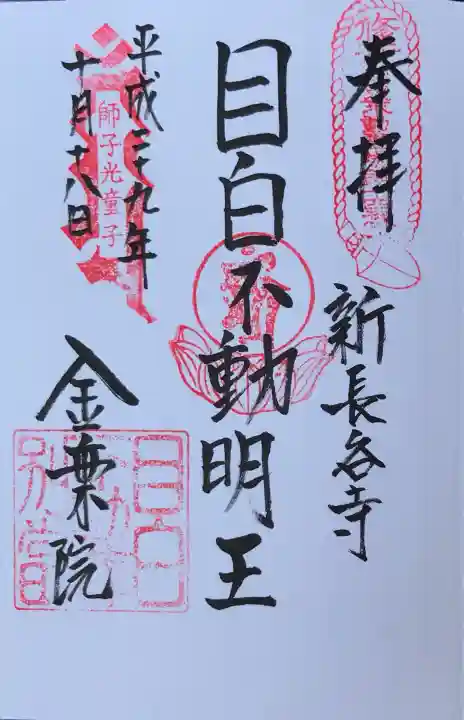 奉拝
新長谷寺
目白不動明王
平成二十九年
十月十八日
師子光童子
金乗院
目白
別当